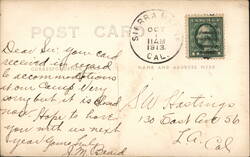 POST CARD
SIERRA
OCT
11AM
1913
CAL.
NAME AND ADDRESS HERE
Dear Sir your card
received in regard
to accommodations
at our Camp. Very
sorry but it is closed
now. Hope to have
you with us next
year. Yours truly
J.M. Baird
S.W. Hastings
130 East Ave 56
L.A. Cal